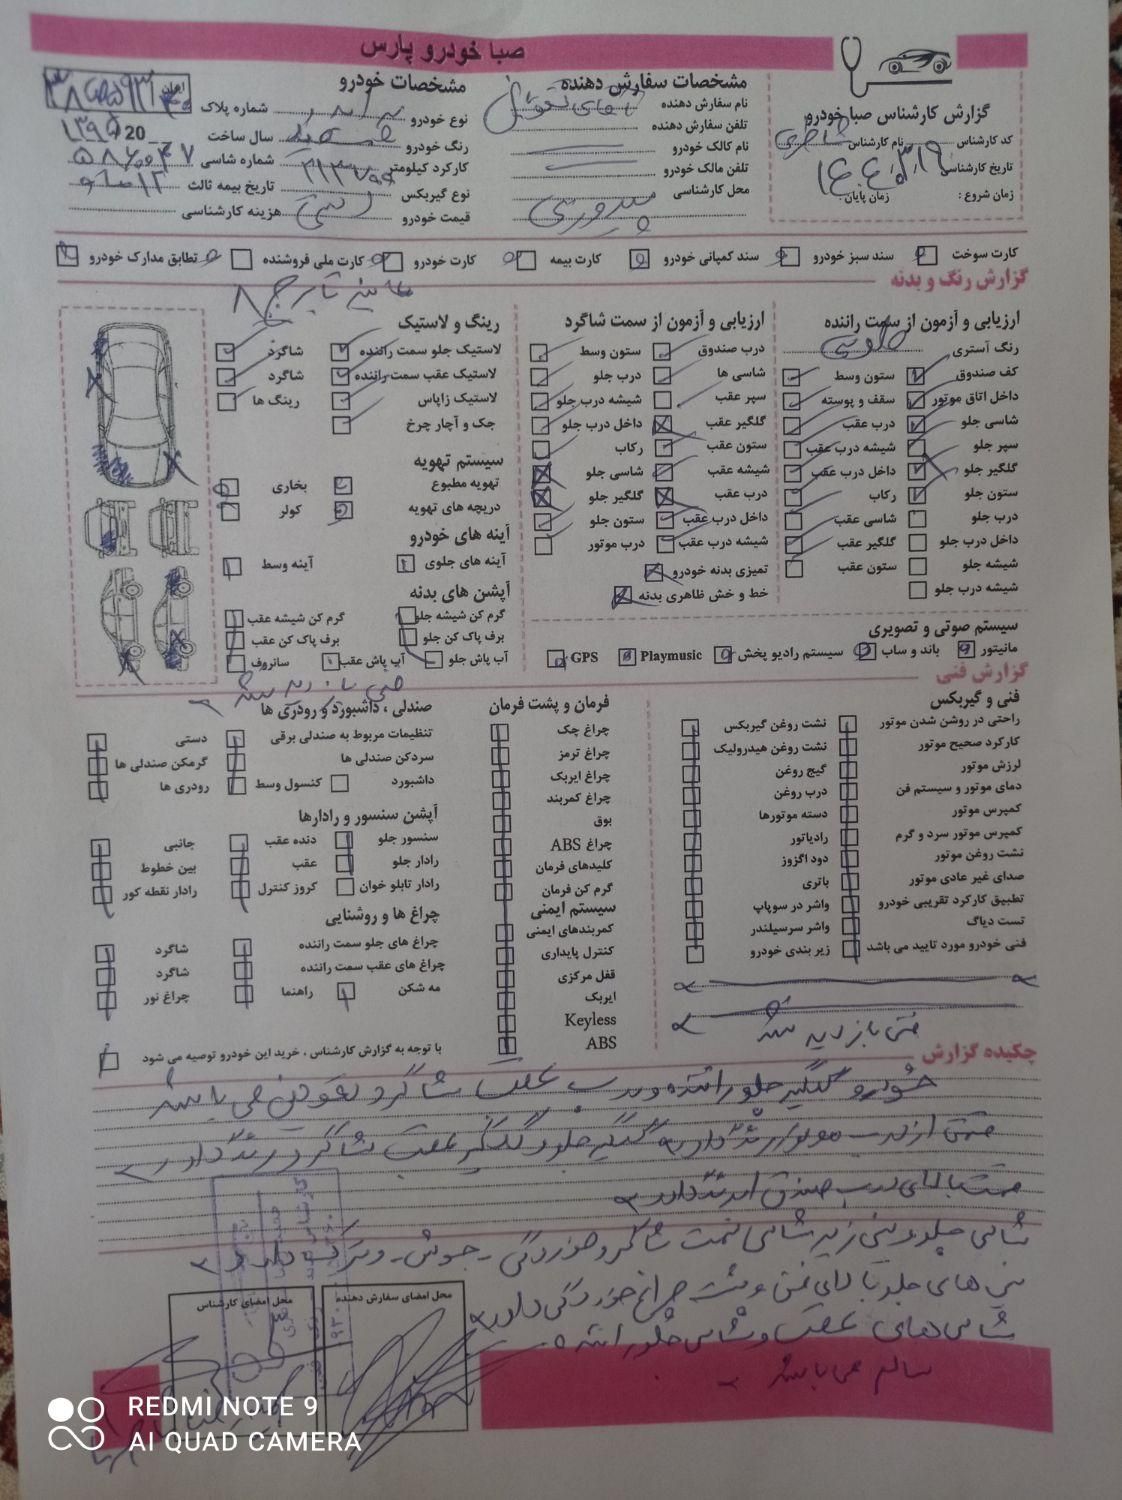 صبا خودرو پارس
گزارش کارشناس صبا خودرو
کد کارشناس
نام کارشناس
تاریخ کارشناسی
زمان شروع :
زمان پایان:
مشخصات سفارش دهنده
نام سفارش دهنده
تلفن سفارش دهنده
نام مالک خودرو
تلفن مالک خودرو
محل کارشناسی
مشخصات خودرو
نوع خودرو
شماره پلاک
رنگ خودرو
سال ساخت 20
کارکرد کیلومتر
شماره شاسی
نوع گیربکس
تاریخ بیمه ثالث
قیمت خودرو
هزینه کارشناسی
کارت سوخت سند سبز خودرو سند کمپانی خودرو کارت بیمه کارت خودرو کارت ملی فروشنده تطابق مدارک خودرو
گزارش رنگ و بدنه
ارزیابی و آزمون از سمت راننده
رنگ آستری
کف صندوق ستون وسط
داخل اتاق موتور سقف و پوسته
شاسی جلو درب عقب
سپر جلو شیشه درب عقب
گلگیر جلو داخل درب عقب
ستون جلو رکاب
درب جلو شاسی عقب
داخل درب جلو گلگیر عقب
شیشه جلو ستون عقب
شیشه درب جلو
ارزیابی و آزمون از سمت شاگرد
درب صندوق ستون وسط
شاسی ها درب جلو
سپر عقب شیشه درب جلو
گلگیر عقب داخل درب جلو
ستون عقب رکاب
شیشه عقب شاسی جلو
درب عقب گلگیر جلو
داخل درب عقب ستون جلو
شیشه درب عقب درب موتور
تمیزی بدنه خودرو
خط و خش ظاهری بدنه
سیستم صوتی و تصویری
مانیتور باند و ساب سیستم رادیو پخش Playmusic GPS
رینگ و لاستیک
لاستیک جلو سمت راننده شاگرد
لاستیک عقب سمت راننده شاگرد
لاستیک زاپاس رینگ ها
جک و آچار چرخ
سیستم تهویه
تهویه مطبوع بخاری
دریچه های تهویه کولر
آینه های خودرو
آینه های جلوی آینه وسط
آپشن های بدنه
گرم کن شیشه جلو گرم کن شیشه عقب
برف پاک کن جلو برف پاک کن عقب
آب پاش جلو آب پاش عقب سانروف
گزارش فنی
فنی و گیربکس
راحتی در روشن شدن موتور نشت روغن گیربکس
کارکرد صحیح موتور نشت روغن هیدرولیک
لرزش موتور گیج روغن
دمای موتور و سیستم فن درب روغن
کمپرس موتور دسته موتورها
کمپرس موتور سرد و گرم رادیاتور
نشت روغن موتور دود اگزوز
صدای غیر عادی موتور باتری
تطبیق کارکرد تقریبی خودرو واشر در سوپاپ
تست دیاگ واشر سرسیلندر
فنی خودرو مورد تایید می باشد زیر بندی خودرو
فنی بازدید نشد
فرمان و پشت فرمان
چراغ چک
چراغ ترمز
چراغ ایربک
چراغ کمربند
بوق
چراغ ABS
کلیدهای فرمان
گرم کن فرمان
سیستم ایمنی
کمربندهای ایمنی
کنترل پایداری
قفل مرکزی
ایربک
Keyless
ABS
صندلی ، داشبورد و رودری ها
تنظیمات مربوط به صندلی برقی دستی
سردکن صندلی ها گرمکن صندلی ها
داشبورد کنسول وسط رودری ها
آپشن سنسور و رادارها
سنسور جلو دنده عقب جانبی
رادار جلو عقب بین خطوط
رادار تابلو خوان کروز کنترل رادار نقطه کور
چراغ ها و روشنایی
چراغ های جلو سمت راننده شاگرد
چراغ های عقب سمت راننده شاگرد
مه شکن راهنما چراغ نور
با توجه به گزارش کارشناس ، خرید این خودرو توصیه می شود
چکیده گزارش
خودرو گلگیر جلو راننده و درب عقب شاگرد تعویض می باشد
درب موتور رنگ دارد گلگیر جلو و گلگیر عقب شاگرد رنگ دارد
درب صندوق رنگ دارد
شاسی جلو زیر شاسی سمت شاگرد خوردگی - جوش - و ترک دارد
سینی های جلو بالای فن و پشت چراغ خوردگی دارد
شاسی های عقب و شاسی جلو راننده
سالم می باشد
محل امضای سفارش دهنده
محل امضای کارشناس
REDMI NOTE 9
AI QUAD CAMERA